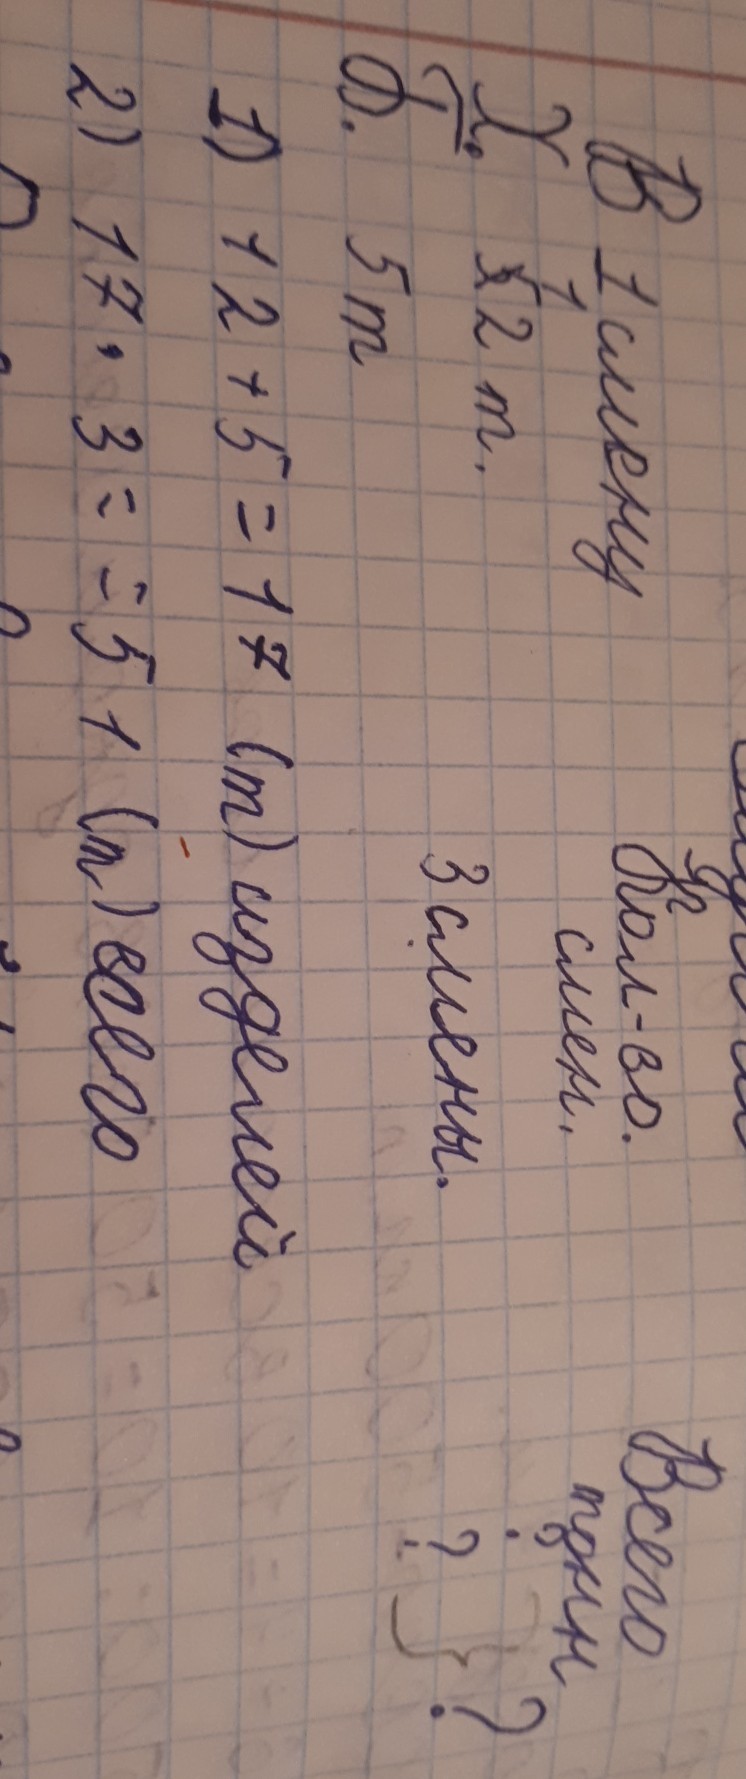 В 1 смену Кол-во. Всего
смен. тонн
Х. 12 т. ?
3 смены. } ?
Ф. 5 т ?
1) 12 + 5 = 17 (т) изделей
2) 17 · 3 = = 51 (т) всего